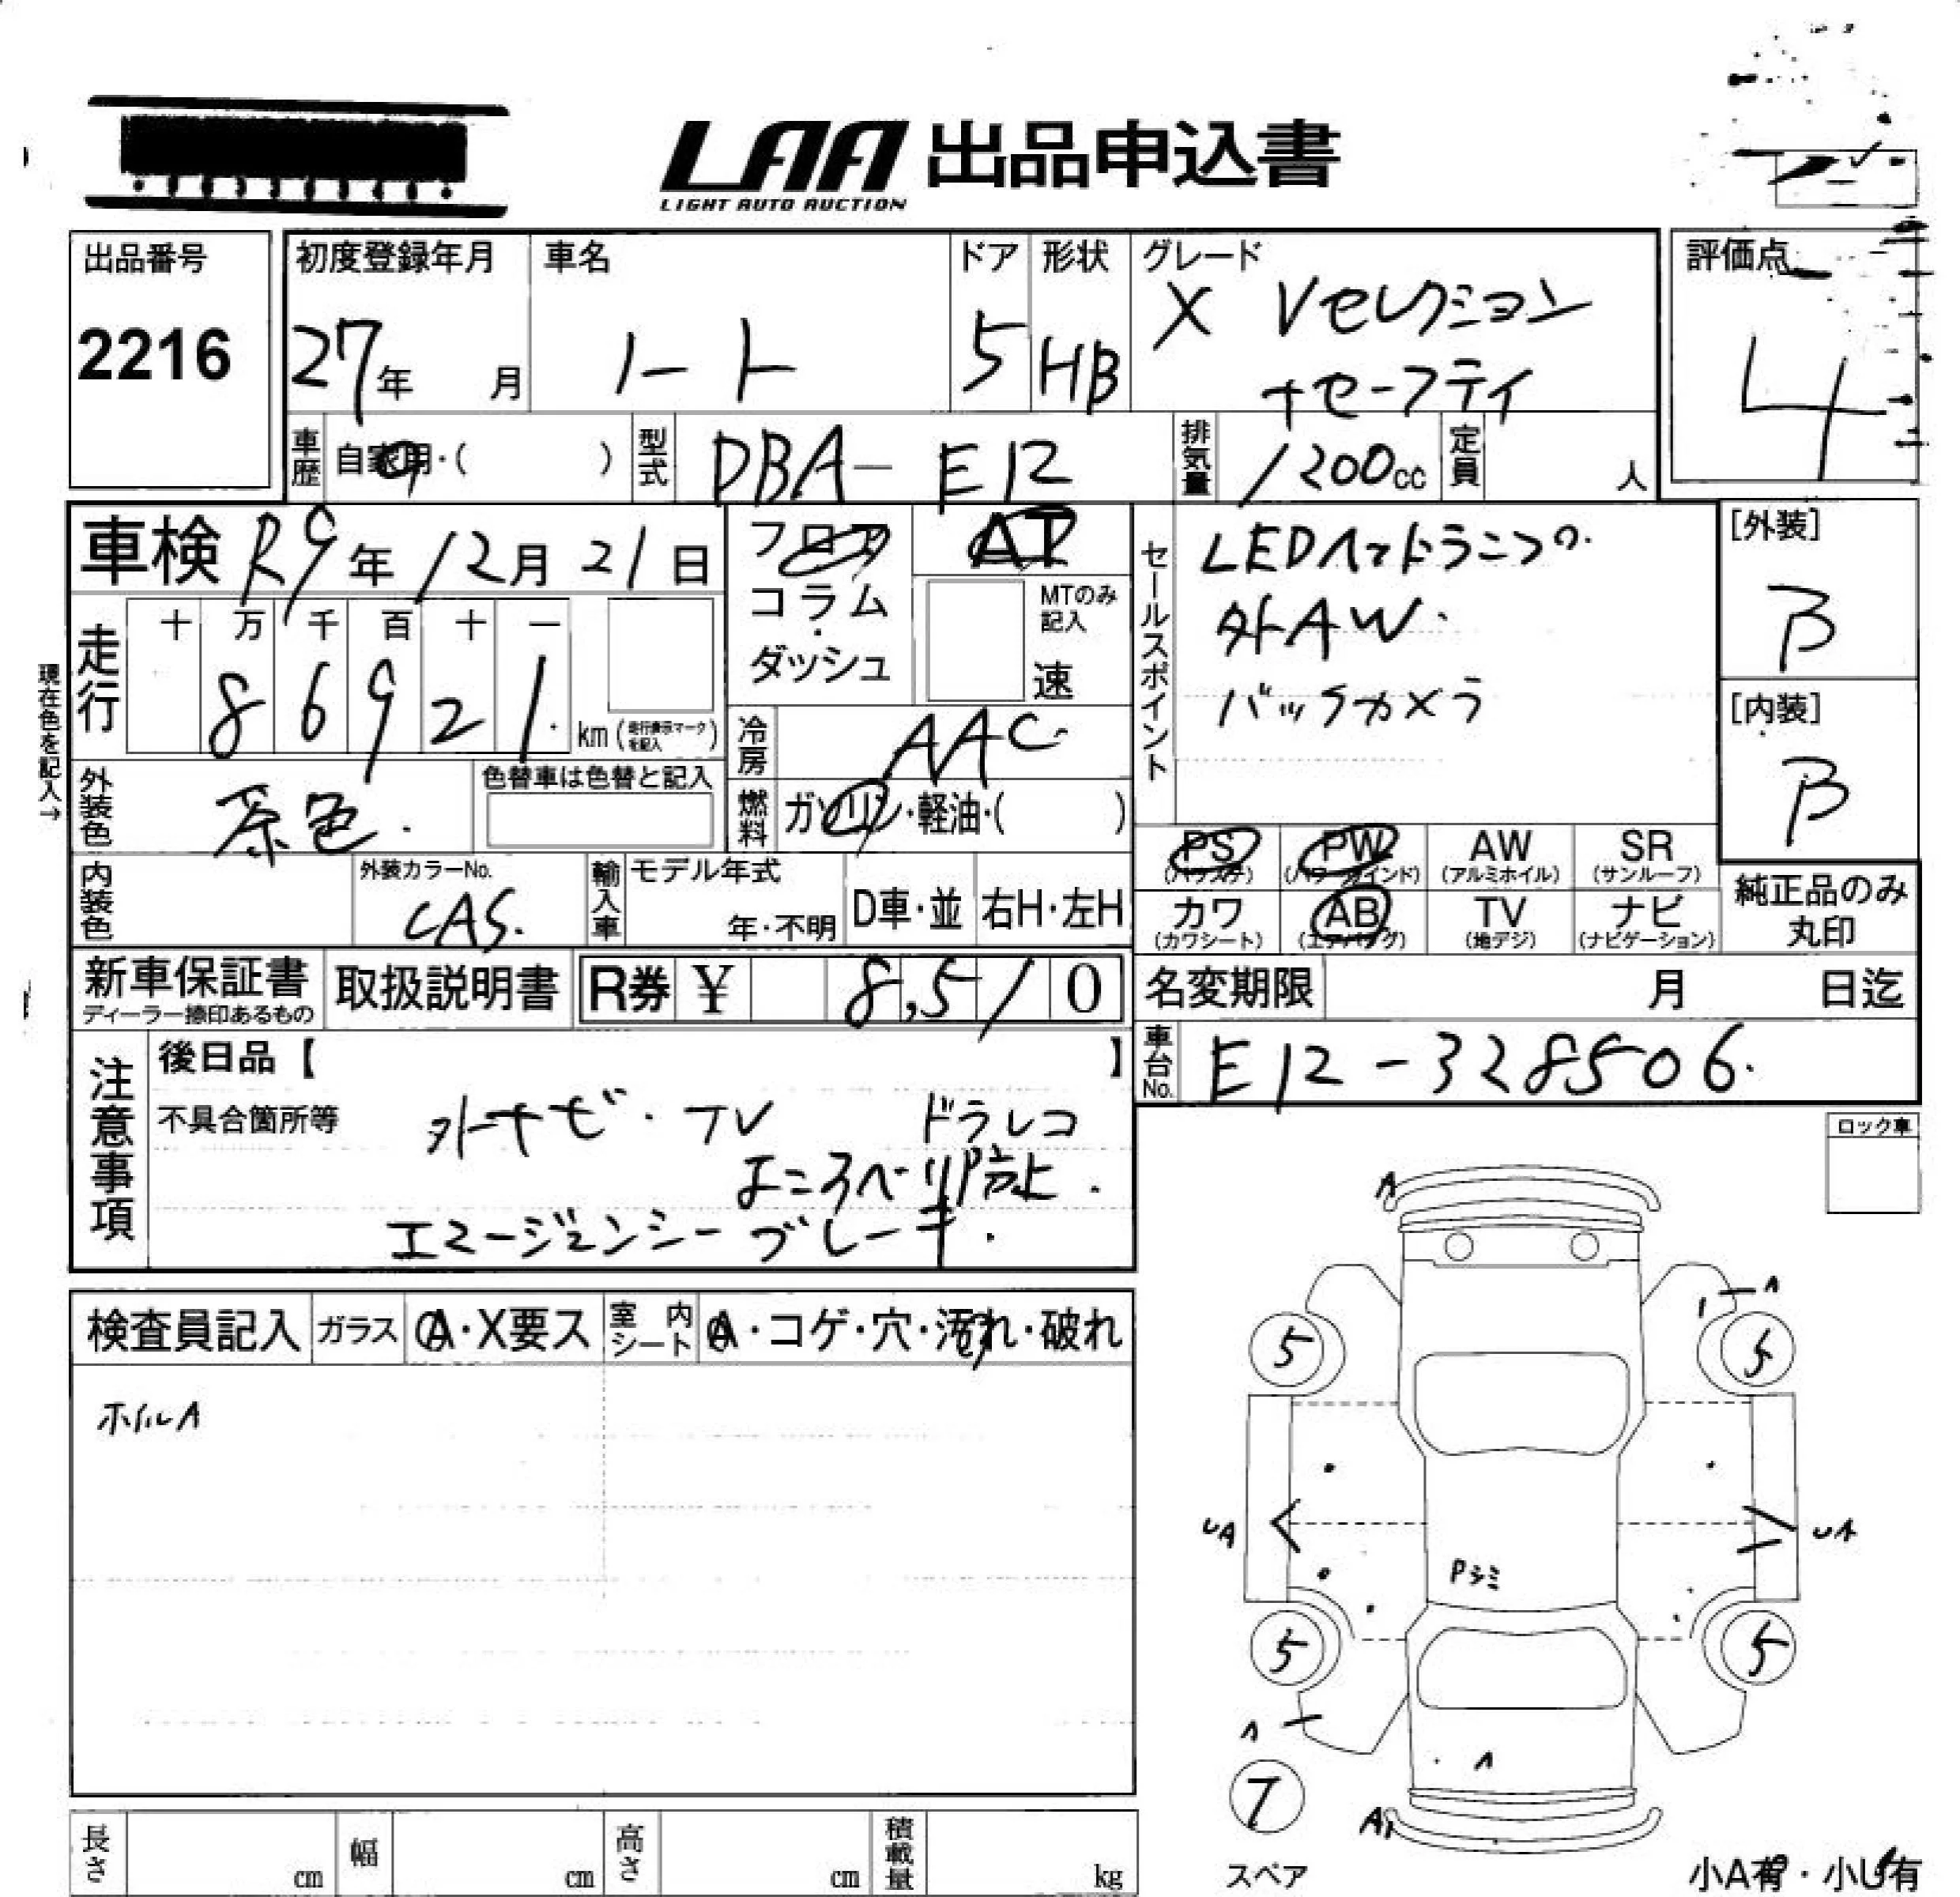 LAA 出品申込書
LIGHT AUTO AUCTION
出品番号
2216
初度登録年月
27年 月
車名
ノート
ドア
5
形状
HB
グレード
X Vセレクション
+セーフティ
評価点
4
車歴
自家用・( )
型式
DBA-E12
排気量
1200cc
定員
人
車検 R9年12月21日
フロア
コラム
・
ダッシュ
AT
MTのみ
記入
速
セールスポイント
LEDヘッドランプ
外AW.
バックカメラ
[外装]
B
[内装]
B
現在色を記入→
走行
十 万 千 百 十 一
8 6 9 2 1
km (走行表示マークを記入)
冷房
AAC
外装色
茶色.
色替車は色替と記入
燃料
ガソリン・軽油・( )
内装色
外装カラーNo.
CAS.
輸入車
モデル年式
年・不明
D車・並
右H・左H
PS
(パワステ)
PW
(パワーウインド)
AW
(アルミホイル)
SR
(サンルーフ)
カワ
(カワシート)
AB
(エアバッグ)
TV
(地デジ)
ナビ
(ナビゲーション)
純正品のみ
丸印
新車保証書
ディーラー捺印あるもの
取扱説明書
R券 ¥ 8,510
名変期限
月 日迄
車台No.
E12-328506.
注意事項
後日品【 】
不具合箇所等
外ナビ・TV ドラレコ
よこすべり防止.
エマージェンシーブレーキ.
ロック車
検査員記入
ガラス
A・X要ス
室内シート
A・コゲ・穴・汚れ・破れ
ホイルA
A
A
5
5
UA
UA
Pシミ
5
5
A
A
T
スペア
A
長さ
cm
幅
cm
高さ
cm
積載量
kg
小A有・小U有